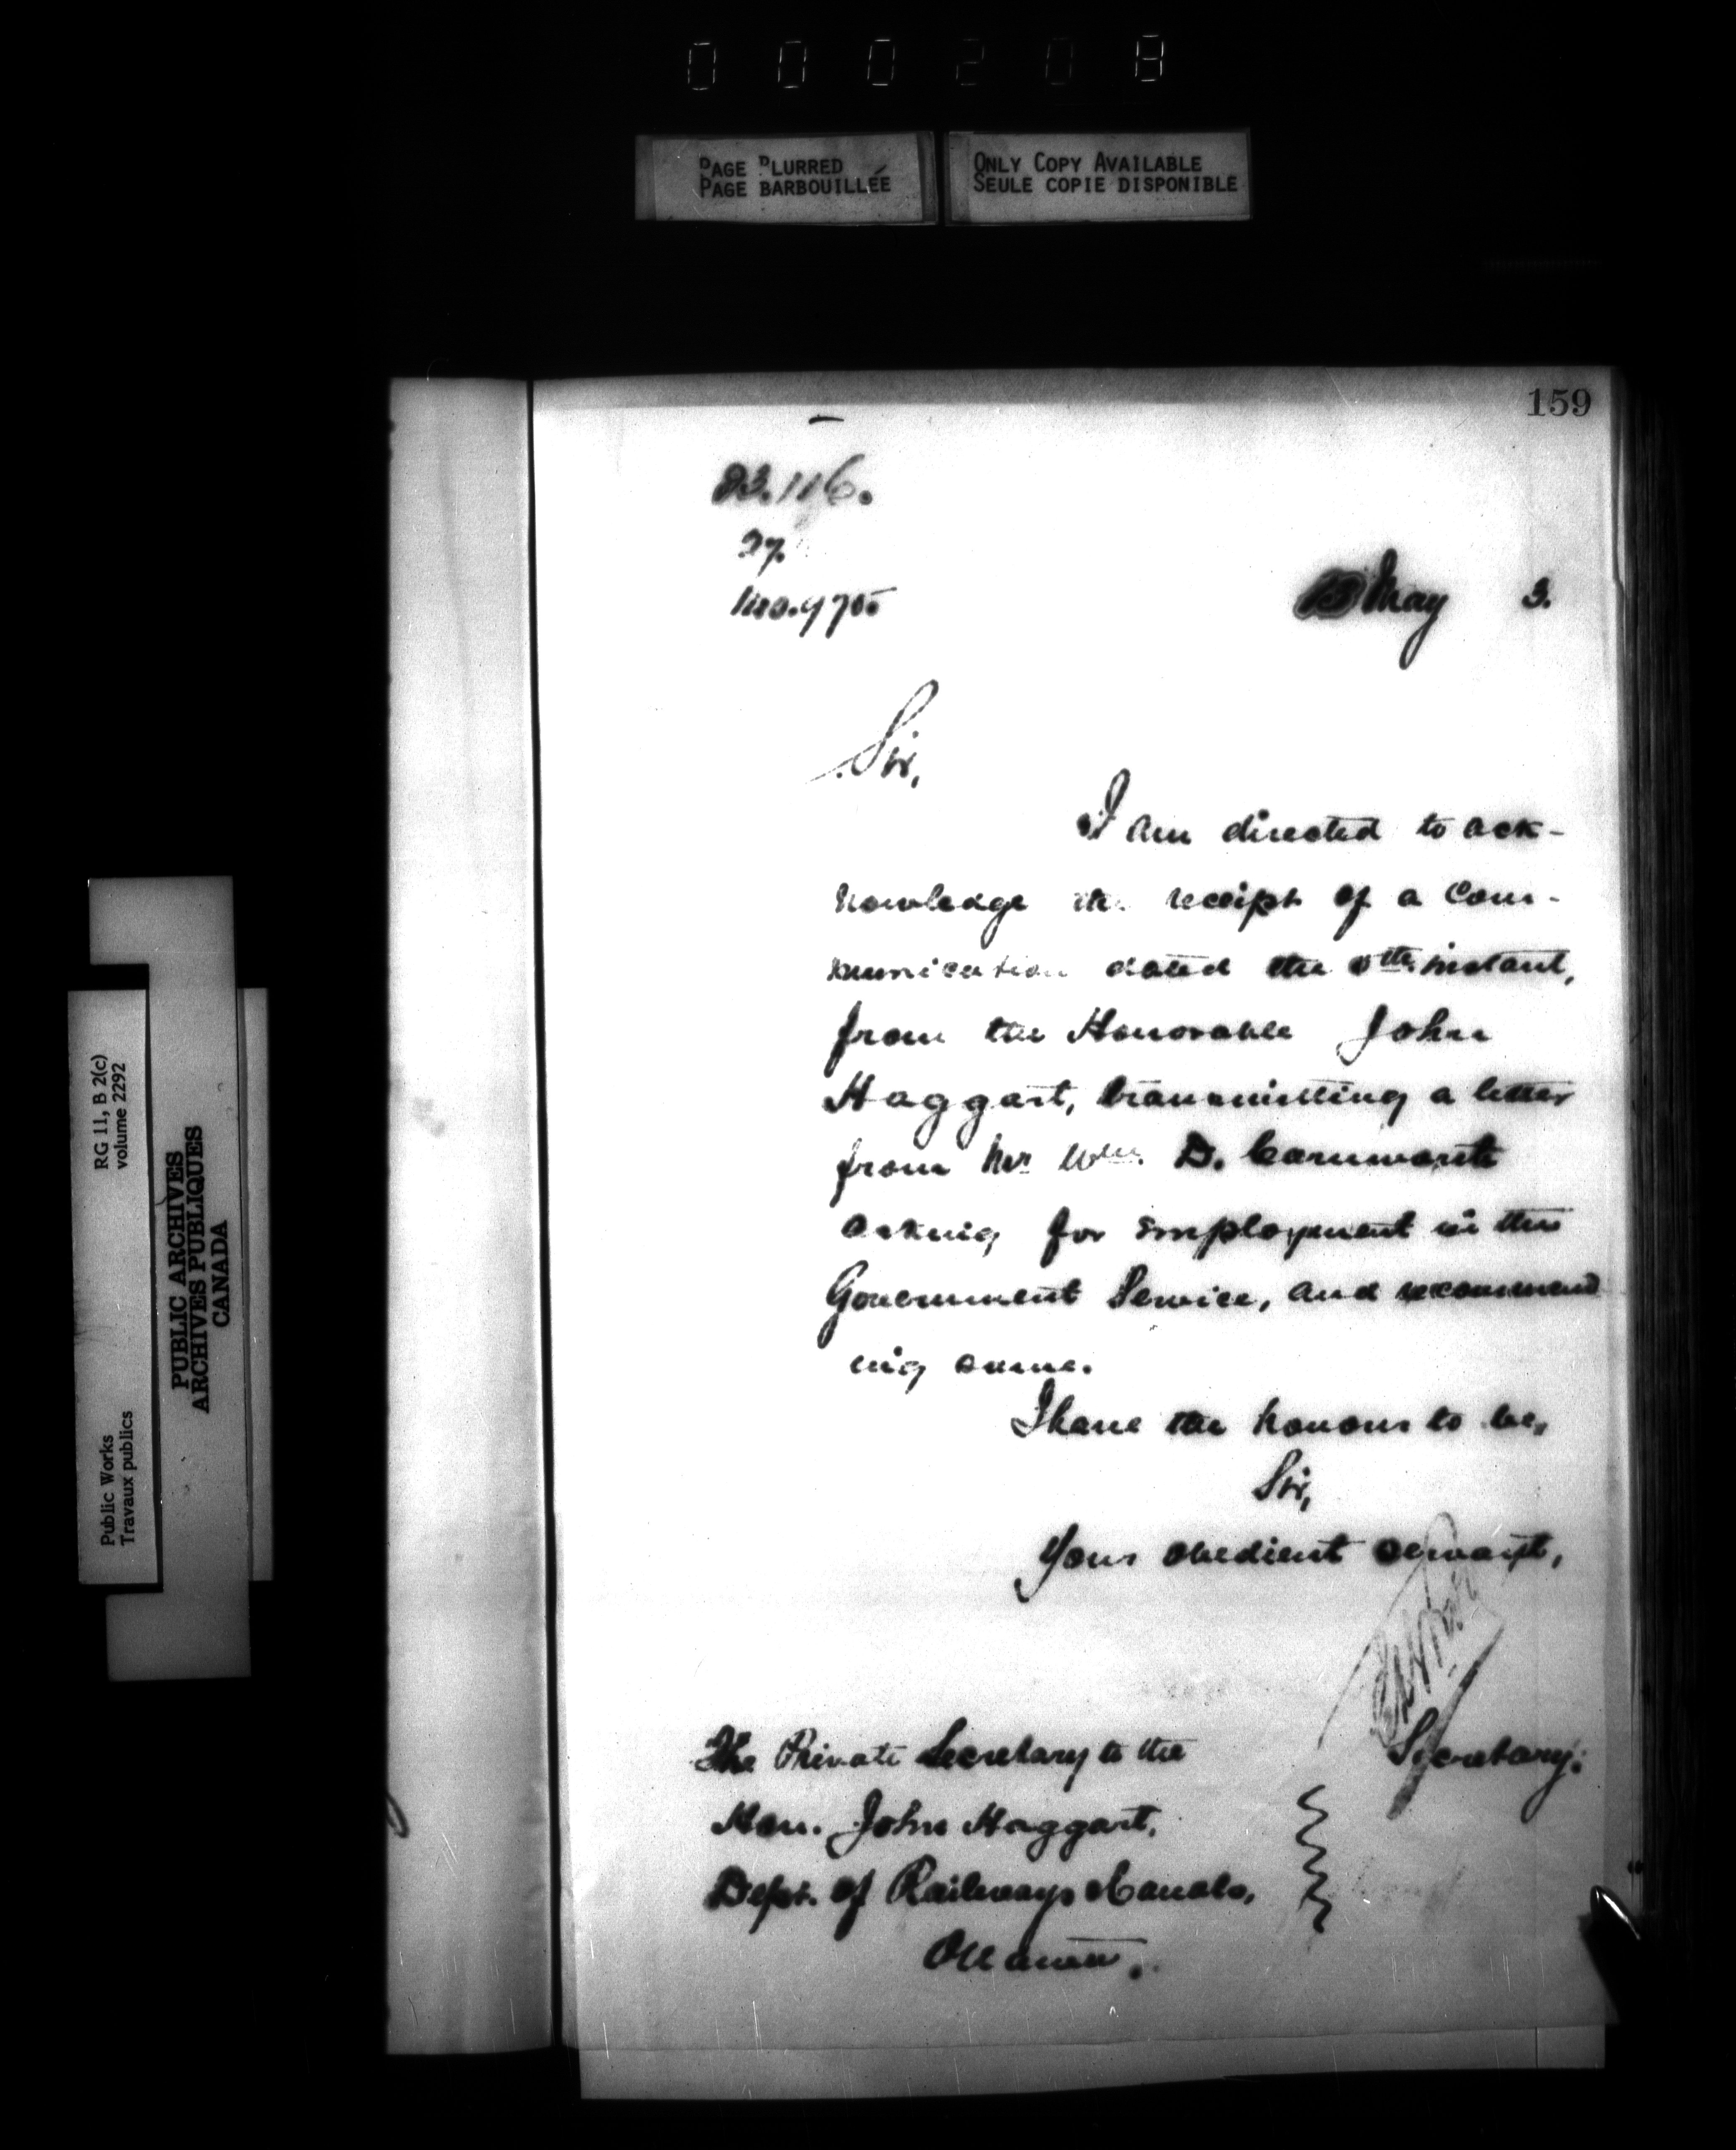 000208
PAGE BLURRED
PAGE BARBOUILLÉE
ONLY COPY AVAILABLE
SEULE COPIE DISPONIBLE
RG 11, B 2(c)
volume 2292
PUBLIC ARCHIVES
ARCHIVES PUBLIQUES
CANADA
Public Works
Travaux publics
159
23.116.
27.
140.975
13 May 3.
Sir,
I am directed to ack-
nowledge the receipt of a Com-
munication dated the instant,
from the Honorable John
Haggart, transmitting a letter
from Mr Wm. D.
asking for employment in the
Government Service, and recommend
ing same.
I have the honour to be,
Sir,
Your obedient servant,
Secretary.
The Private Secretary to the
Hon. John Haggart,
Dept. of Railways & Canals,
Ottawa.